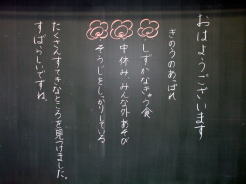 おはようございます
きのうのあっぱれ
しずかなきゅう食
中休み、みんな外あそび
そうじをしっかりしている
たくさんすてきなところを見つけました。
すばらしいですね。